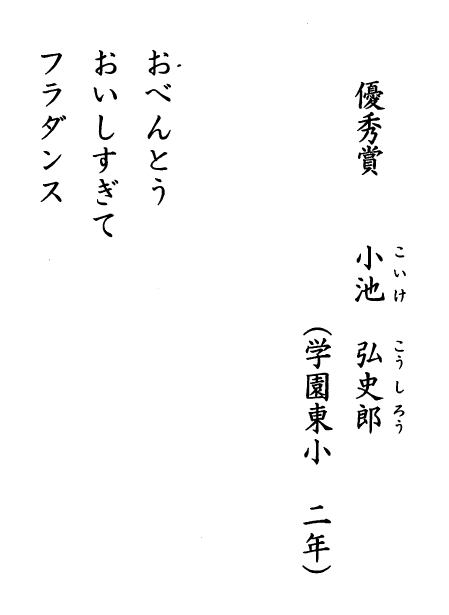 優秀賞　小池　弘史郎
こいけ　こうしろう
（学園東小　二年）
おべんとう
おいしすぎて
フラダンス